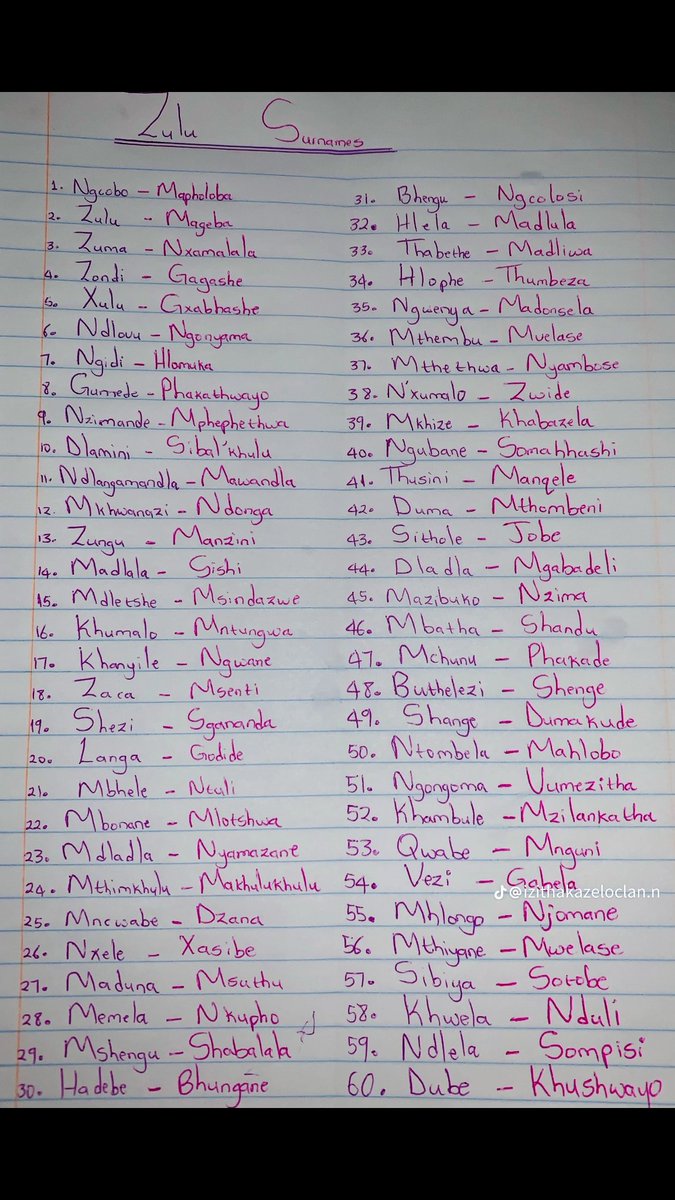 Zulu Surnames
1. Ngcobo - Mapholoba
2. Zulu - Mageba
3. Zuma - Nxamalala
4. Zondi - Gagashe
5. Xulu - Gxabhashe
6. Ndlovu - Ngonyama
7. Ngidi - Hlomuka
8. Gumede - Phakathwayo
9. Nzimande - Mphephethwa
10. Dlamini - Sibal'khulu
11. Ndlangamandla - Mawandla
12. Mkhwanazi - Ndonga
13. Zungu - Manzini
14. Madlala - Gishi
15. Mdletshe - Msindazwe
16. Khumalo - Mntungwa
17. Khanyile - Ngwane
18. Zaca - Msenti
19. Shezi - Sgananda
20. Langa - Godide
21. Mbhele - Ntuli
22. Mbonane - Mlotshwa
23. Mdladla - Nyamazane
24. Mthimkhulu - Makhulukhulu
25. Mncwabe - Dzana
26. Nxele - Xasibe
27. Maduna - Msuthu
28. Memela - N'kupho
29. Mshengu - Shabalala
30. Hadebe - Bhungane
31. Bhengu - Ngcolosi
32. Hlela - Madlula
33. Thabethe - Madliwa
34. Hlophe - Thumbeza
35. Ngwenya - Madonsela
36. Mthembu - Mvelase
37. Mthethwa - Nyambose
38. N'xumalo - Zwide
39. Mkhize - Khabazela
40. Ngubane - Somahhashi
41. Thusini - Manqele
42. Duma - Mthombeni
43. Sithole - Jobe
44. Dladla - Mgabadeli
45. Mazibuko - Nzima
46. Mbatha - Shandu
47. Mchunu - Phakade
48. Buthelezi - Shenge
49. Shange - Dumakude
50. Ntombela - Mahlobo
51. Ngongoma - Vumezitha
52. Khambule - Mzilankatha
53. Qwabe - Mnguni
54. Vezi - Gabela
@izithakazeloclan.n
55. Mhlongo - Njomane
56. Mthiyane - Mwelase
57. Sibiya - Sotobe
58. Khwela - Nduli
59. Ndlela - Sompisi
60. Dube - Khushwayo